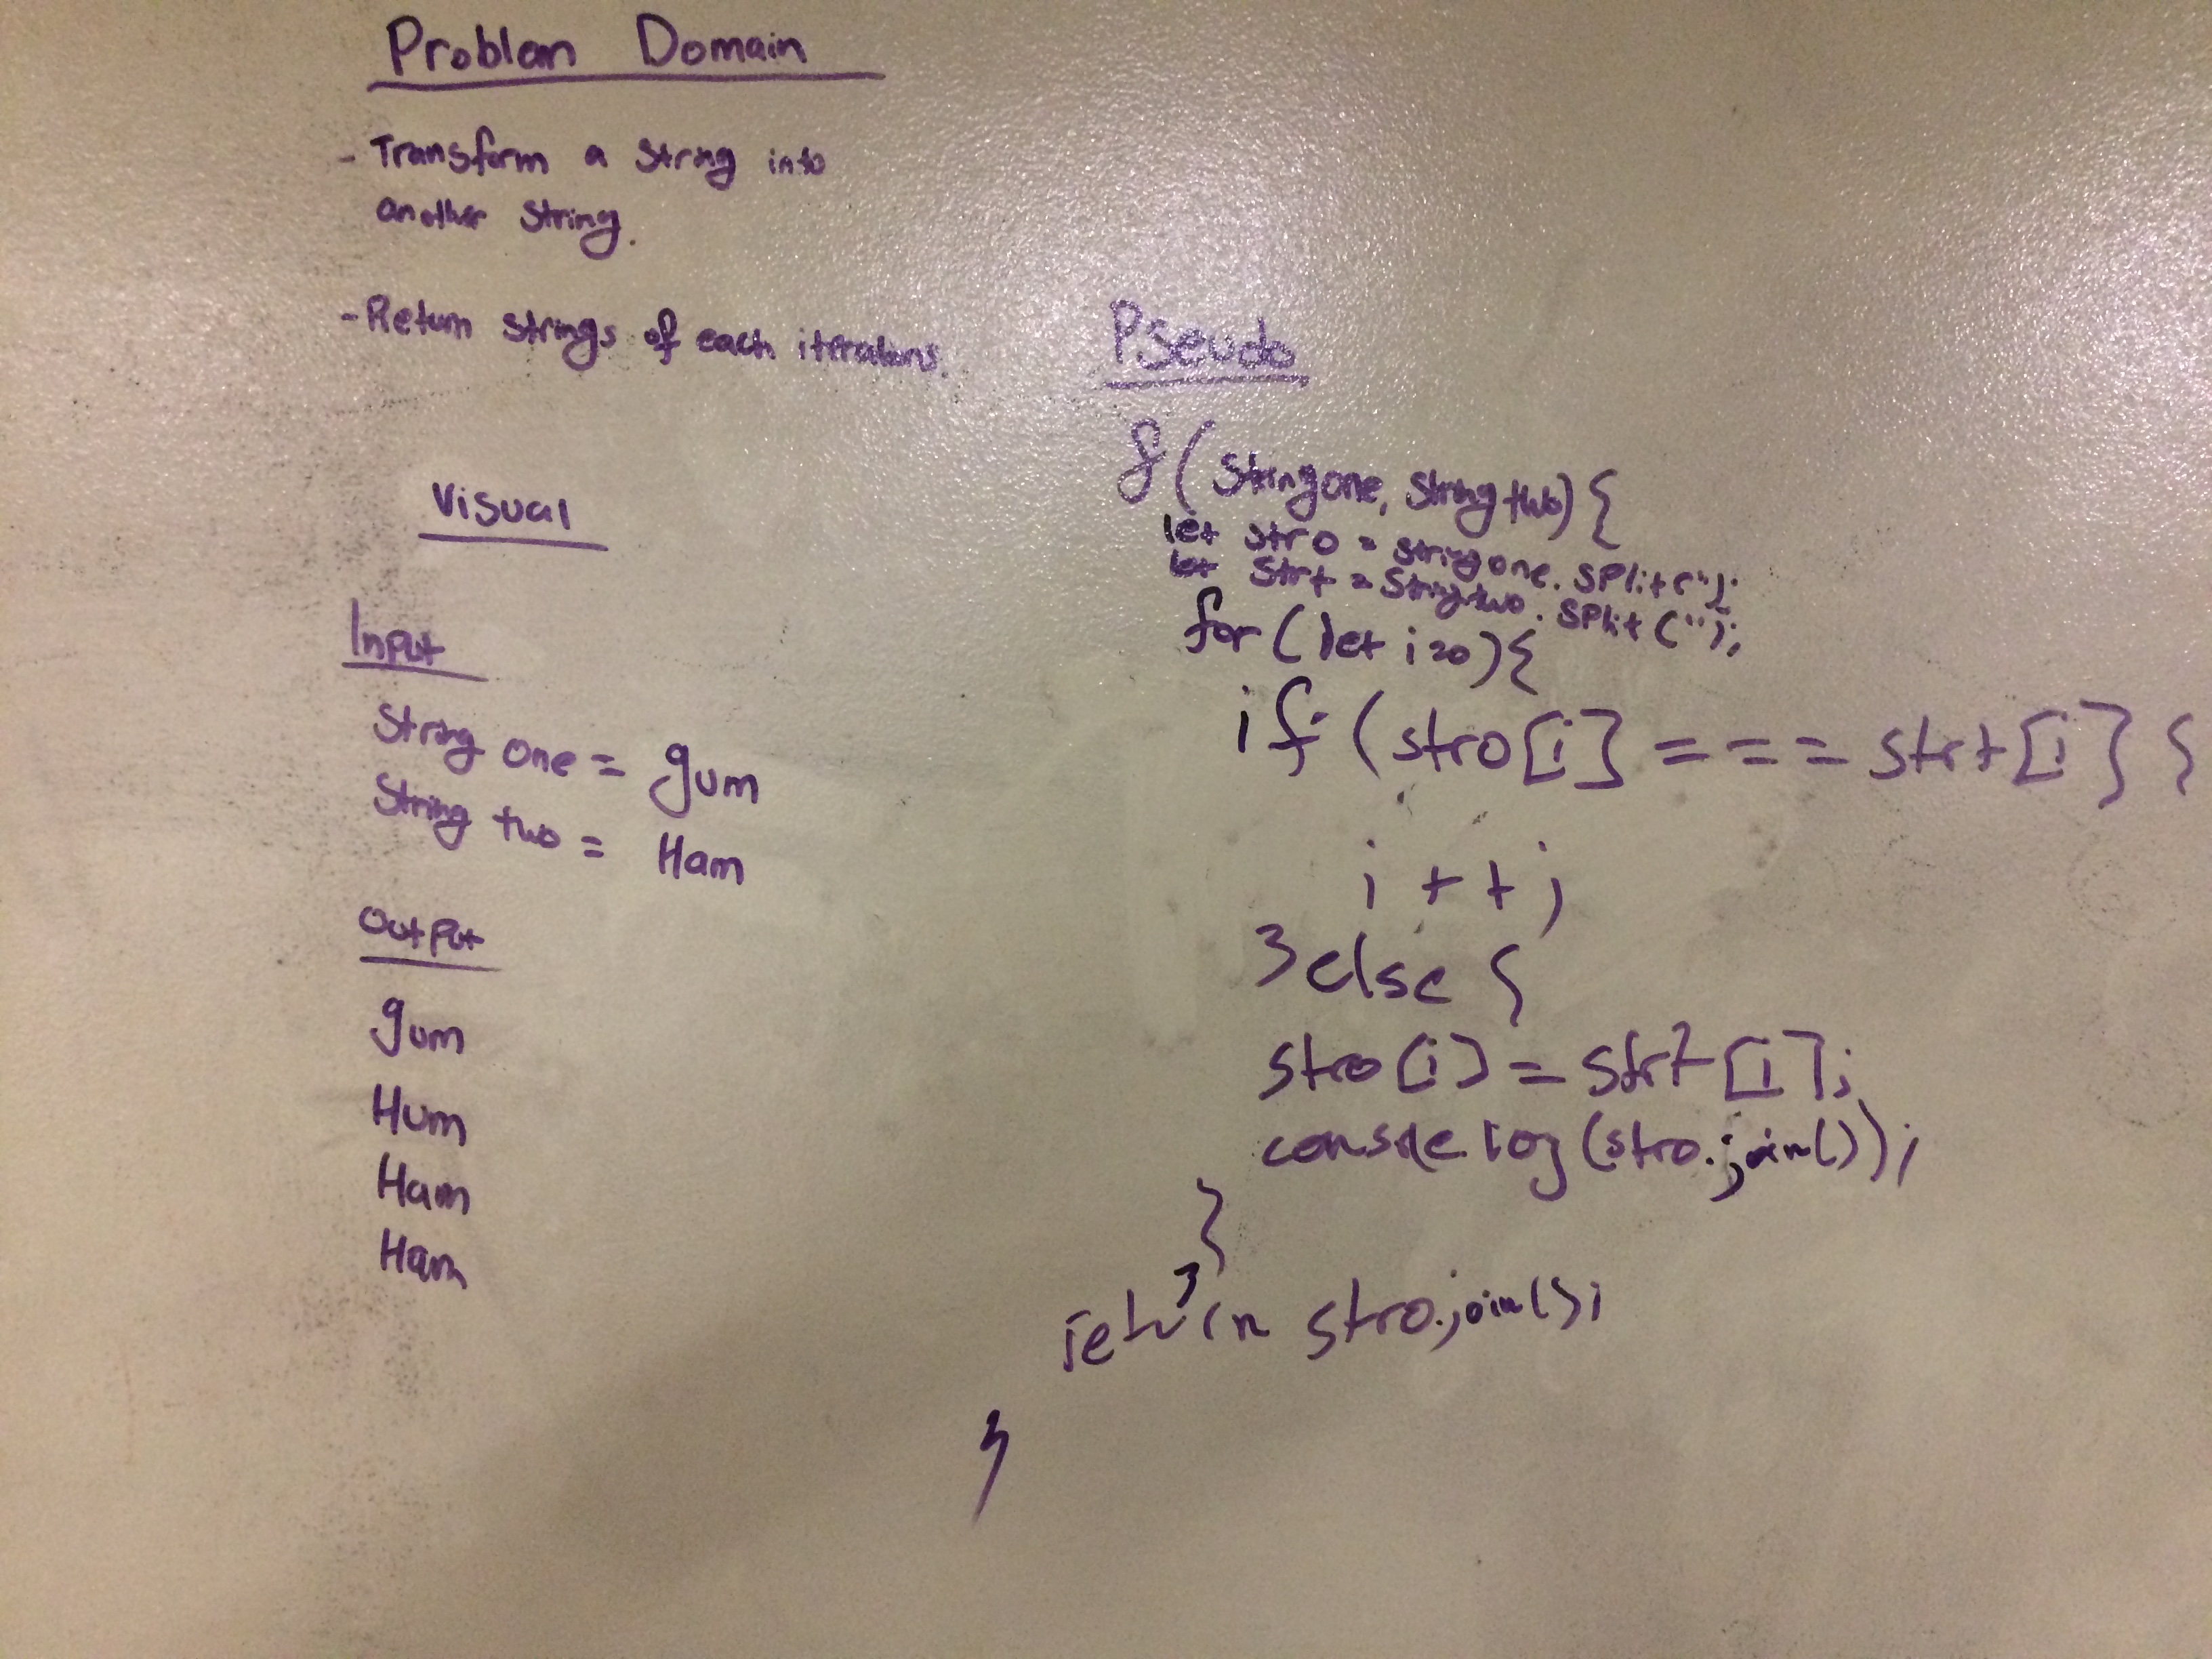 Problem Domain
- Transform a String into
another String.
- Return strings of each iterations.
Visual
Input
String one = gum
String two = Ham
Output
gum
Hum
Ham
Ham
Pseudo
f(Stringone, Stringtwo) {
let stro = stringone.split('');
let strt = Stringtwo.split('');
for (let i=0) {
if (stro[i] === strt[i] {
i++;
} else {
stro[i] = strt[i];
console.log(stro.join());
}
}
return stro.join();
}